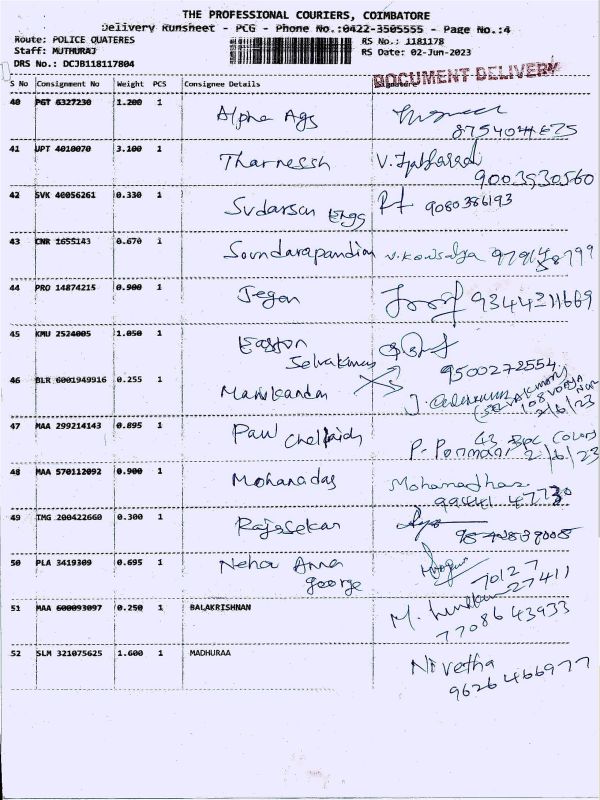 THE PROFESSIONAL COURIERS, COIMBATORE
Delivery Runsheet - PCG - Phone No.:0422-3505555 - Page No.:4
Route: POLICE QUATERES
RS No.: 1181178
Staff: MUTHURAJ
RS Date: 02-Jun-2023
DRS No.: DCJB118117804
DOCUMENT DELIVERY
S No Consignment No Weight PCS Consignee Details Signature
40 PGT 6327230 1.200 1 Alpha Ags
41 UPT 4010070 3.100 1 Tharnessh
9003530560
42 SVK 40056261 0.330 1 Sudarsan Engg 9080386193
43 CNR 1655143 0.670 1 Soundarapandian V. Kousalya
44 PRO 14874215 0.900 1 Jegan 9344211669
45 KMU 2524005 1.050 1 Easton
Selvakumar
9500272554
46 BLR 6001949916 0.255 1 Manikandan
2/6/23
47 MAA 299214143 0.895 1 Paul 43 BPC Colony
P. Ponmani 2/6/23
48 MAA 570112092 0.900 1 Mohanadas Mohanadhas
49 TMG 200422660 0.300 1 Rajasekar
50 PLA 3419309 0.695 1 Neha Anna
george
70127
27411
51 MAA 600093097 0.250 1 BALAKRISHNAN
7708643933
52 SLM 321075625 1.600 1 MADHURAA Nivetha
9626466977